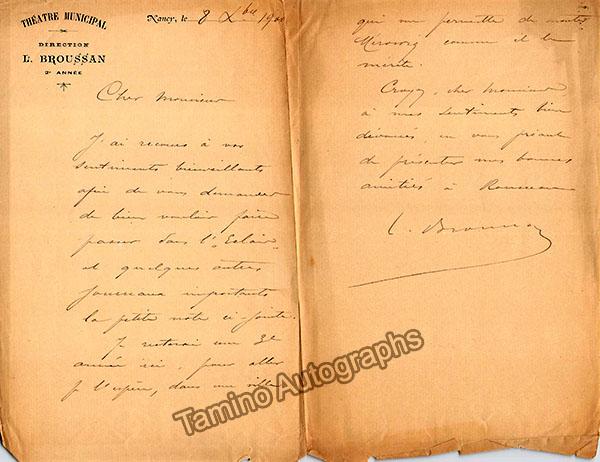 THÉATRE MUNICIPAL
DIRECTION
L. BROUSSAN
2e ANNÉE
Nancy, le 8 Xbre 1900
Cher Monsieur
J'ai recours à vos
sentiments bienveillants
afin de vous demander
de bien vouloir faire
passer dans l'"Eclair"
et quelques autres
journaux importants
la petite note ci-jointe.
Je resterai une 3e
année ici, pour aller
je l'espère, dans une ville
qui me permette de monter
comme il le
mérite.
Croyez, cher Monsieur
à mes sentiments bien
dévoués, en vous priant
de présenter mes bonnes
amitiés à Rousseau
L. Broussan
Tamino Autographs